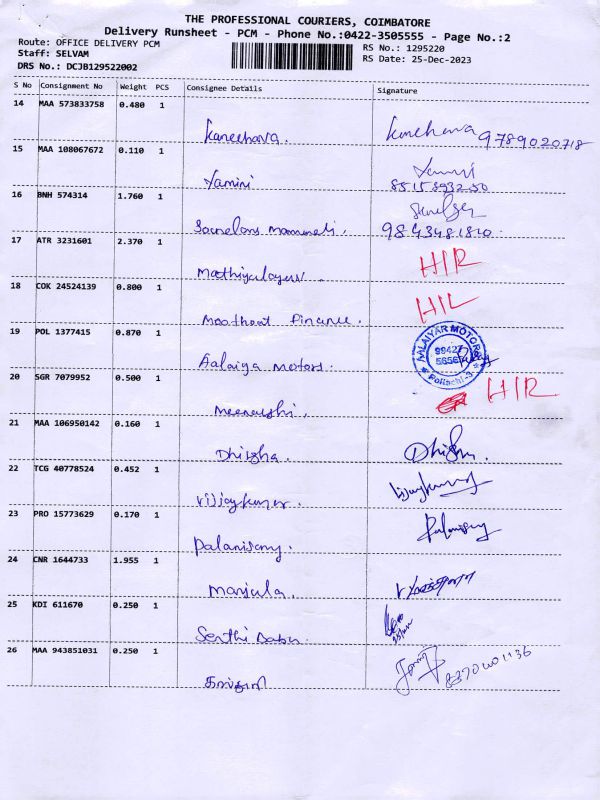 THE PROFESSIONAL COURIERS, COIMBATORE
Delivery Runsheet - PCM - Phone No.:0422-3505555 - Page No.:2
Route: OFFICE DELIVERY PCM
Staff: SELVAM
DRS No.: DCJB129522002
RS No.: 1295220
RS Date: 25-Dec-2023
S No Consignment No Weight PCS Consignee Details Signature
14 MAA 573833758 0.480 1
Kaneehava. 9789020718
15 MAA 108067672 0.110 1
Yamini 8515893250
16 BNH 574314 1.760 1
9843481810
17 ATR 3231601 2.370 1
HIR
18 COK 24524139 0.800 1
HIL
Moothoot Finance.
19 POL 1377415 0.870 1
Aalaiya Motors. AALAIYAR MOTORS 99427 Pollachi-3
20 SGR 7079952 0.500 1
Meenakshi. HIR
21 MAA 106950142 0.160 1
Dhivzha.
22 TCG 40778524 0.452 1
Vijjaykumar. Vijaykumar
23 PRO 15773629 0.170 1
Palanisamy. Palanisamy
24 CNR 1644733 1.955 1
Manjula.
25 KDI 611670 0.250 1
Senthi Babu.
26 MAA 943851031 0.250 1
8370001136